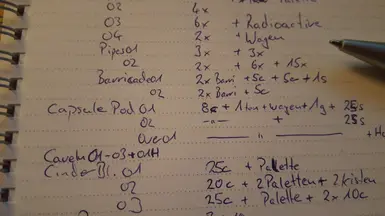 02 4x
03 6x + Radioactive
04 2x + Wagen
Pipes01 3x + 3x
02 2x + 6x + 15x
Barricade01 2x Barri + 5c + 5am + 1g
02 2x Barri + 5c
Capsule Pod 01 8c + 1ton + wagen + 1g + 25s
02 -"- + 25s
Over01 " + Ha
Cavelu01-03+01H
CinderBl. 01 25c + Palette
02 20c + 2Paletten + 2Kisten
03 25c + Palette + 2x 10c